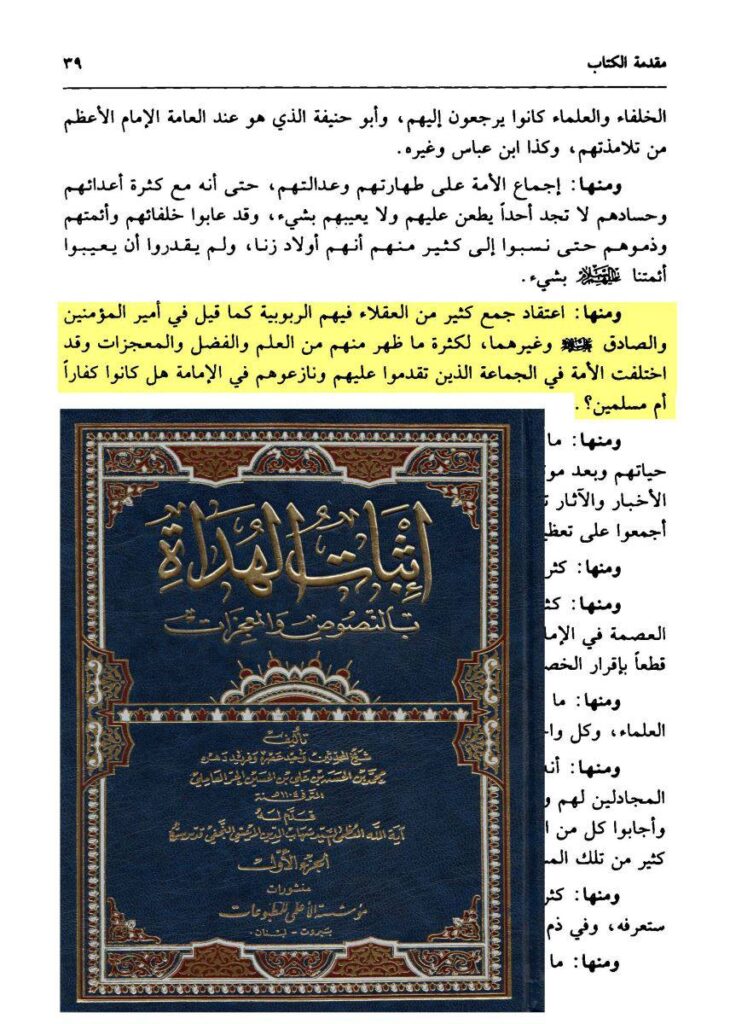 مقدمة الكتاب ٣٩
الخلفاء والعلماء كانوا يرجعون إليهم، وأبو حنيفة الذي هو عند العامة الإمام الأعظم
من تلامذتهم، وكذا ابن عباس وغيره.
ومنها: إجماع الأمة على طهارتهم وعدالتهم، حتى أنه مع كثرة أعدائهم
وحسادهم لا تجد أحداً يطعن عليهم ولا يعيبهم بشيء، وقد عابوا خلفائهم وأئمتهم
وذموهم حتى نسبوا إلى كثير منهم أنهم أولاد زنا، ولم يقدروا أن يعيبوا
أئمتنا عليهم السلام بشيء.
ومنها: اعتقاد جمع كثير من العقلاء فيهم الربوبية كما قيل في أمير المؤمنين
والصادق وغيرهما، لكثرة ما ظهر منهم من العلم والفضل والمعجزات وقد
اختلفت الأمة في الجماعة الذين تقدموا عليهم ونازعوهم في الإمامة هل كانوا كفاراً
أم مسلمين؟.
ومنها: ما
حياتهم وبعد موت
الأخبار والآثار ت
أجمعوا على تعظي
ومنها: كثر
ومنها: كث
العصمة في الإما
قطعاً بإقرار الخص
ومنها: ما
العلماء، وكل وا
ومنها: أنه
المجادلين لهم و
وأجابوا كل من ا
كثير من تلك الم
ومنها: كثر
ستعرفه، وفي ذم
ومنها: ما
إثبات الهداة
بالنصوص والمعجزات
تأليف
شيخ المحدثين وحيد عصره وفريد دهره
محمد بن الحسن بن علي بن الحسين الحر العاملي
المتوفى ١١٠٤ سنة
قدم له
آية الله العظمى السيد شهاب الدين المرعشي النجفي قدس سره
الجزء الأول
منشورات
مؤسسة الأعلمي للمطبوعات
بيروت - لبنان